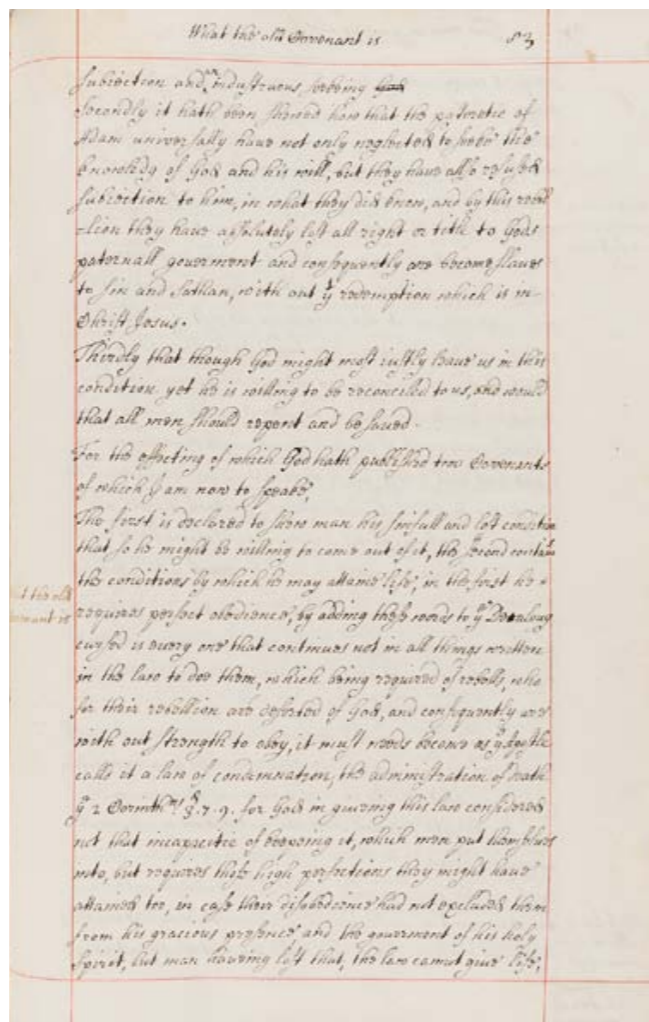 What the old Covenant is 83
subiection and an industruous seeking God
Secondly it hath been shewed how that the posteretie of
Adam universally haue not only neglected to seeke the
knowledg of God and his will, but they haue allso refused
subiection to him, in what they did know, and by this rebel
-lion they haue absolutely lost all right or title to Gods
paternall gouerment and consequently are become slaues
to sin and Sathan, with out ye redemption which is in
Christ Jesus.
Thirdly that though God might most iustly leaue us in this
condition yet he is willing to be reconciled to us, and would
that all men should repent and be saued.
For the effecting of which God hath published two Covenants
of which I am now to speake,
The first is declared to shew man his sinfull and lost condition
that so he might be willing to come out of it, the second contains
the conditions by which he may attaine life, in the first he
t the old
venant is
requires perfect obedience, by adding these words to ye Decaloug
cursed is euery one that continues not in all things written
in the law to doe them, which being required of rebells, who
for their rebellion are deserted of God, and consequently are
with out strength to obey, it must needs become as ye Apostle
calls it a law of condemnation, the administration of death
ye 2 Corinth 3. 7. 9. for God in giueing this law considered
not that incapacitie of keepeing it, which men put themselues
into, but requires those high perfections they might haue
attained too, in case their disobedience had not excluded them
from his gracious presence and the gouerment of his holy
Spirit, but man haueing lost that, the law cannot giue life,